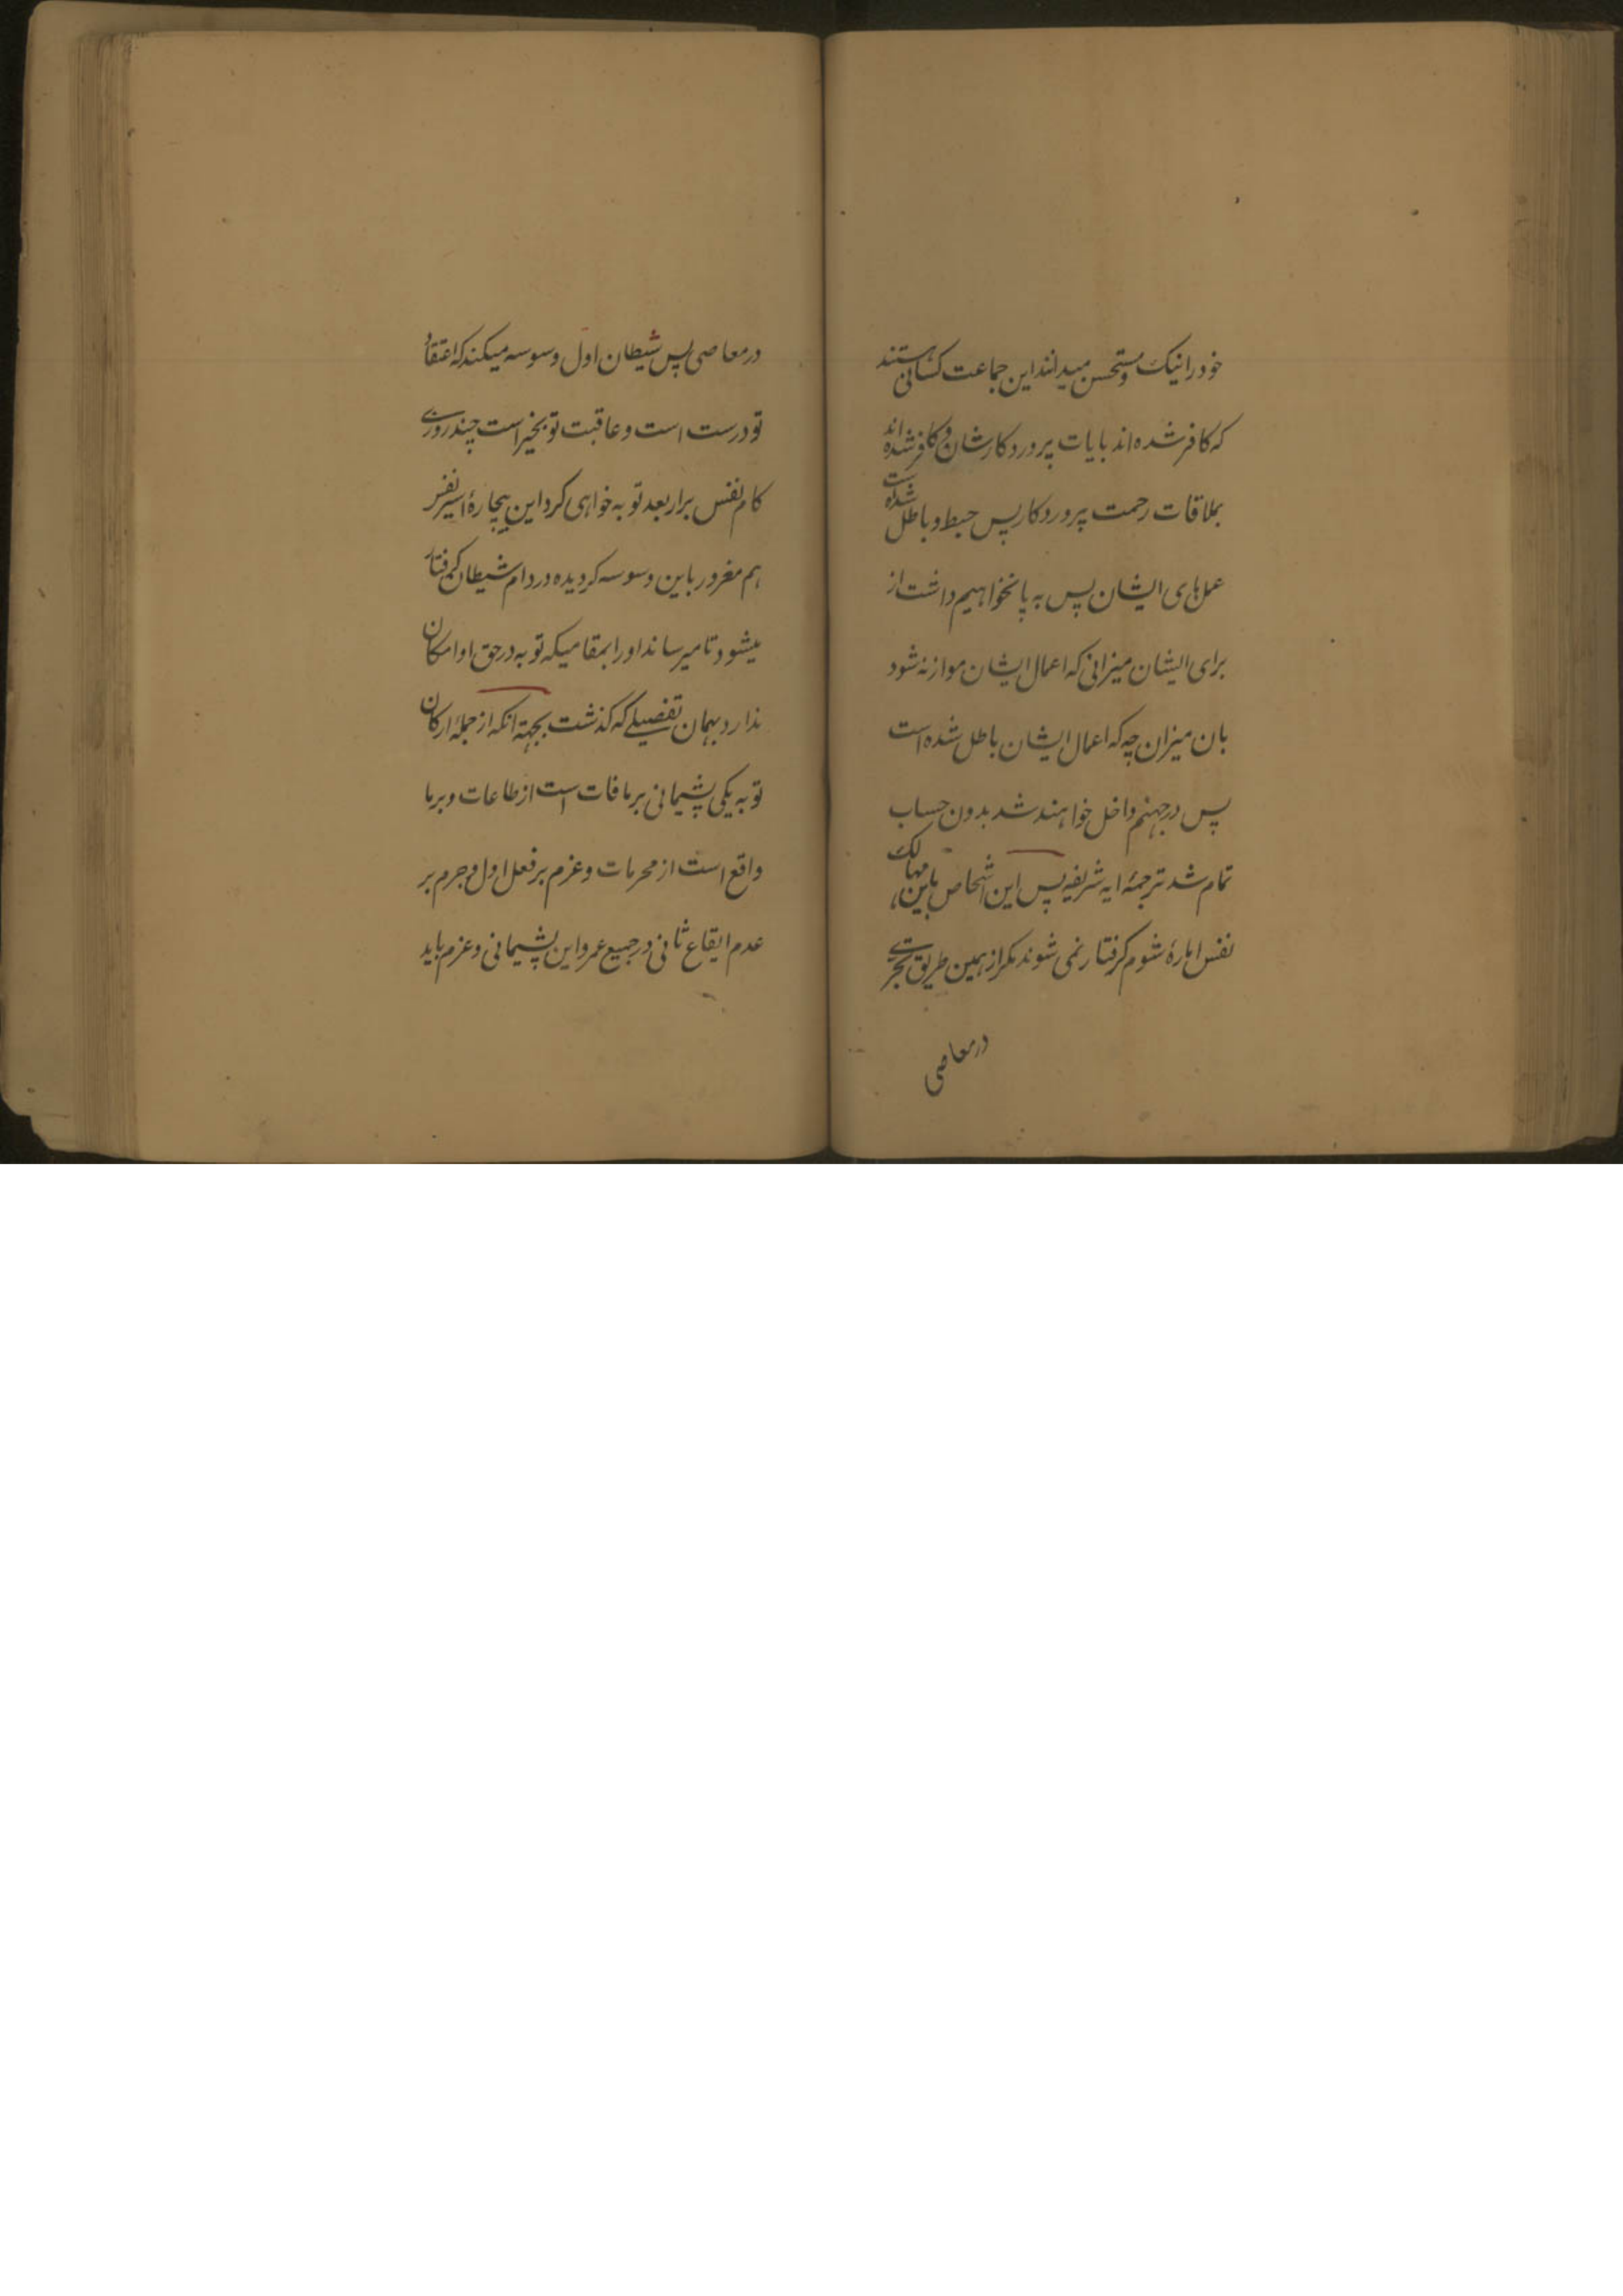 خود را نیک و مستحسن میدانند این جماعت کسانی هستند
که کافر شده‌اند بایات پروردکارشان و کافر شده اند
بملاقات رحمت پروردکار پس حبط و باطل شده است
عمل‌های ایشان پس به پا نخواهیم داشت از
برای ایشان میزانی که اعمال ایشان موازنه شود
بان میزان چه که اعمال ایشان باطل شده است
پس در جهنم داخل خواهند شد بدون حساب
تمام شد ترجمهٔ ایه شریفه پس این اشخاص باین مهالک
نفس امارهٔ شوم کرفتار نمی شوند مکر از همین طریق تجری
در معاصی
در معاصی پس شیطان اول وسوسه میکند که اعتقاد
تو درست است و عاقبت تو بخیر است چند روزی
کام نفس برار بعد توبه خواهی کرد این بیچارهٔ اسیر نفس
هم مغرور باین وسوسه کردیده در دام شیطان کرفتار
میشود تا میرساند او را بمقامیکه توبه در حق او امکان
ندارد بهمان تفصیلی که کذشت بجهة انکه از جملهٔ ارکان
توبه یکی پشیمانی بر مافات است از طاعات و بر ما
واقع است از محرمات و عزم بر فعل اول و جرم بر
عدم ایقاع ثانی در جمیع عمر و این پشیمانی و عزم باید